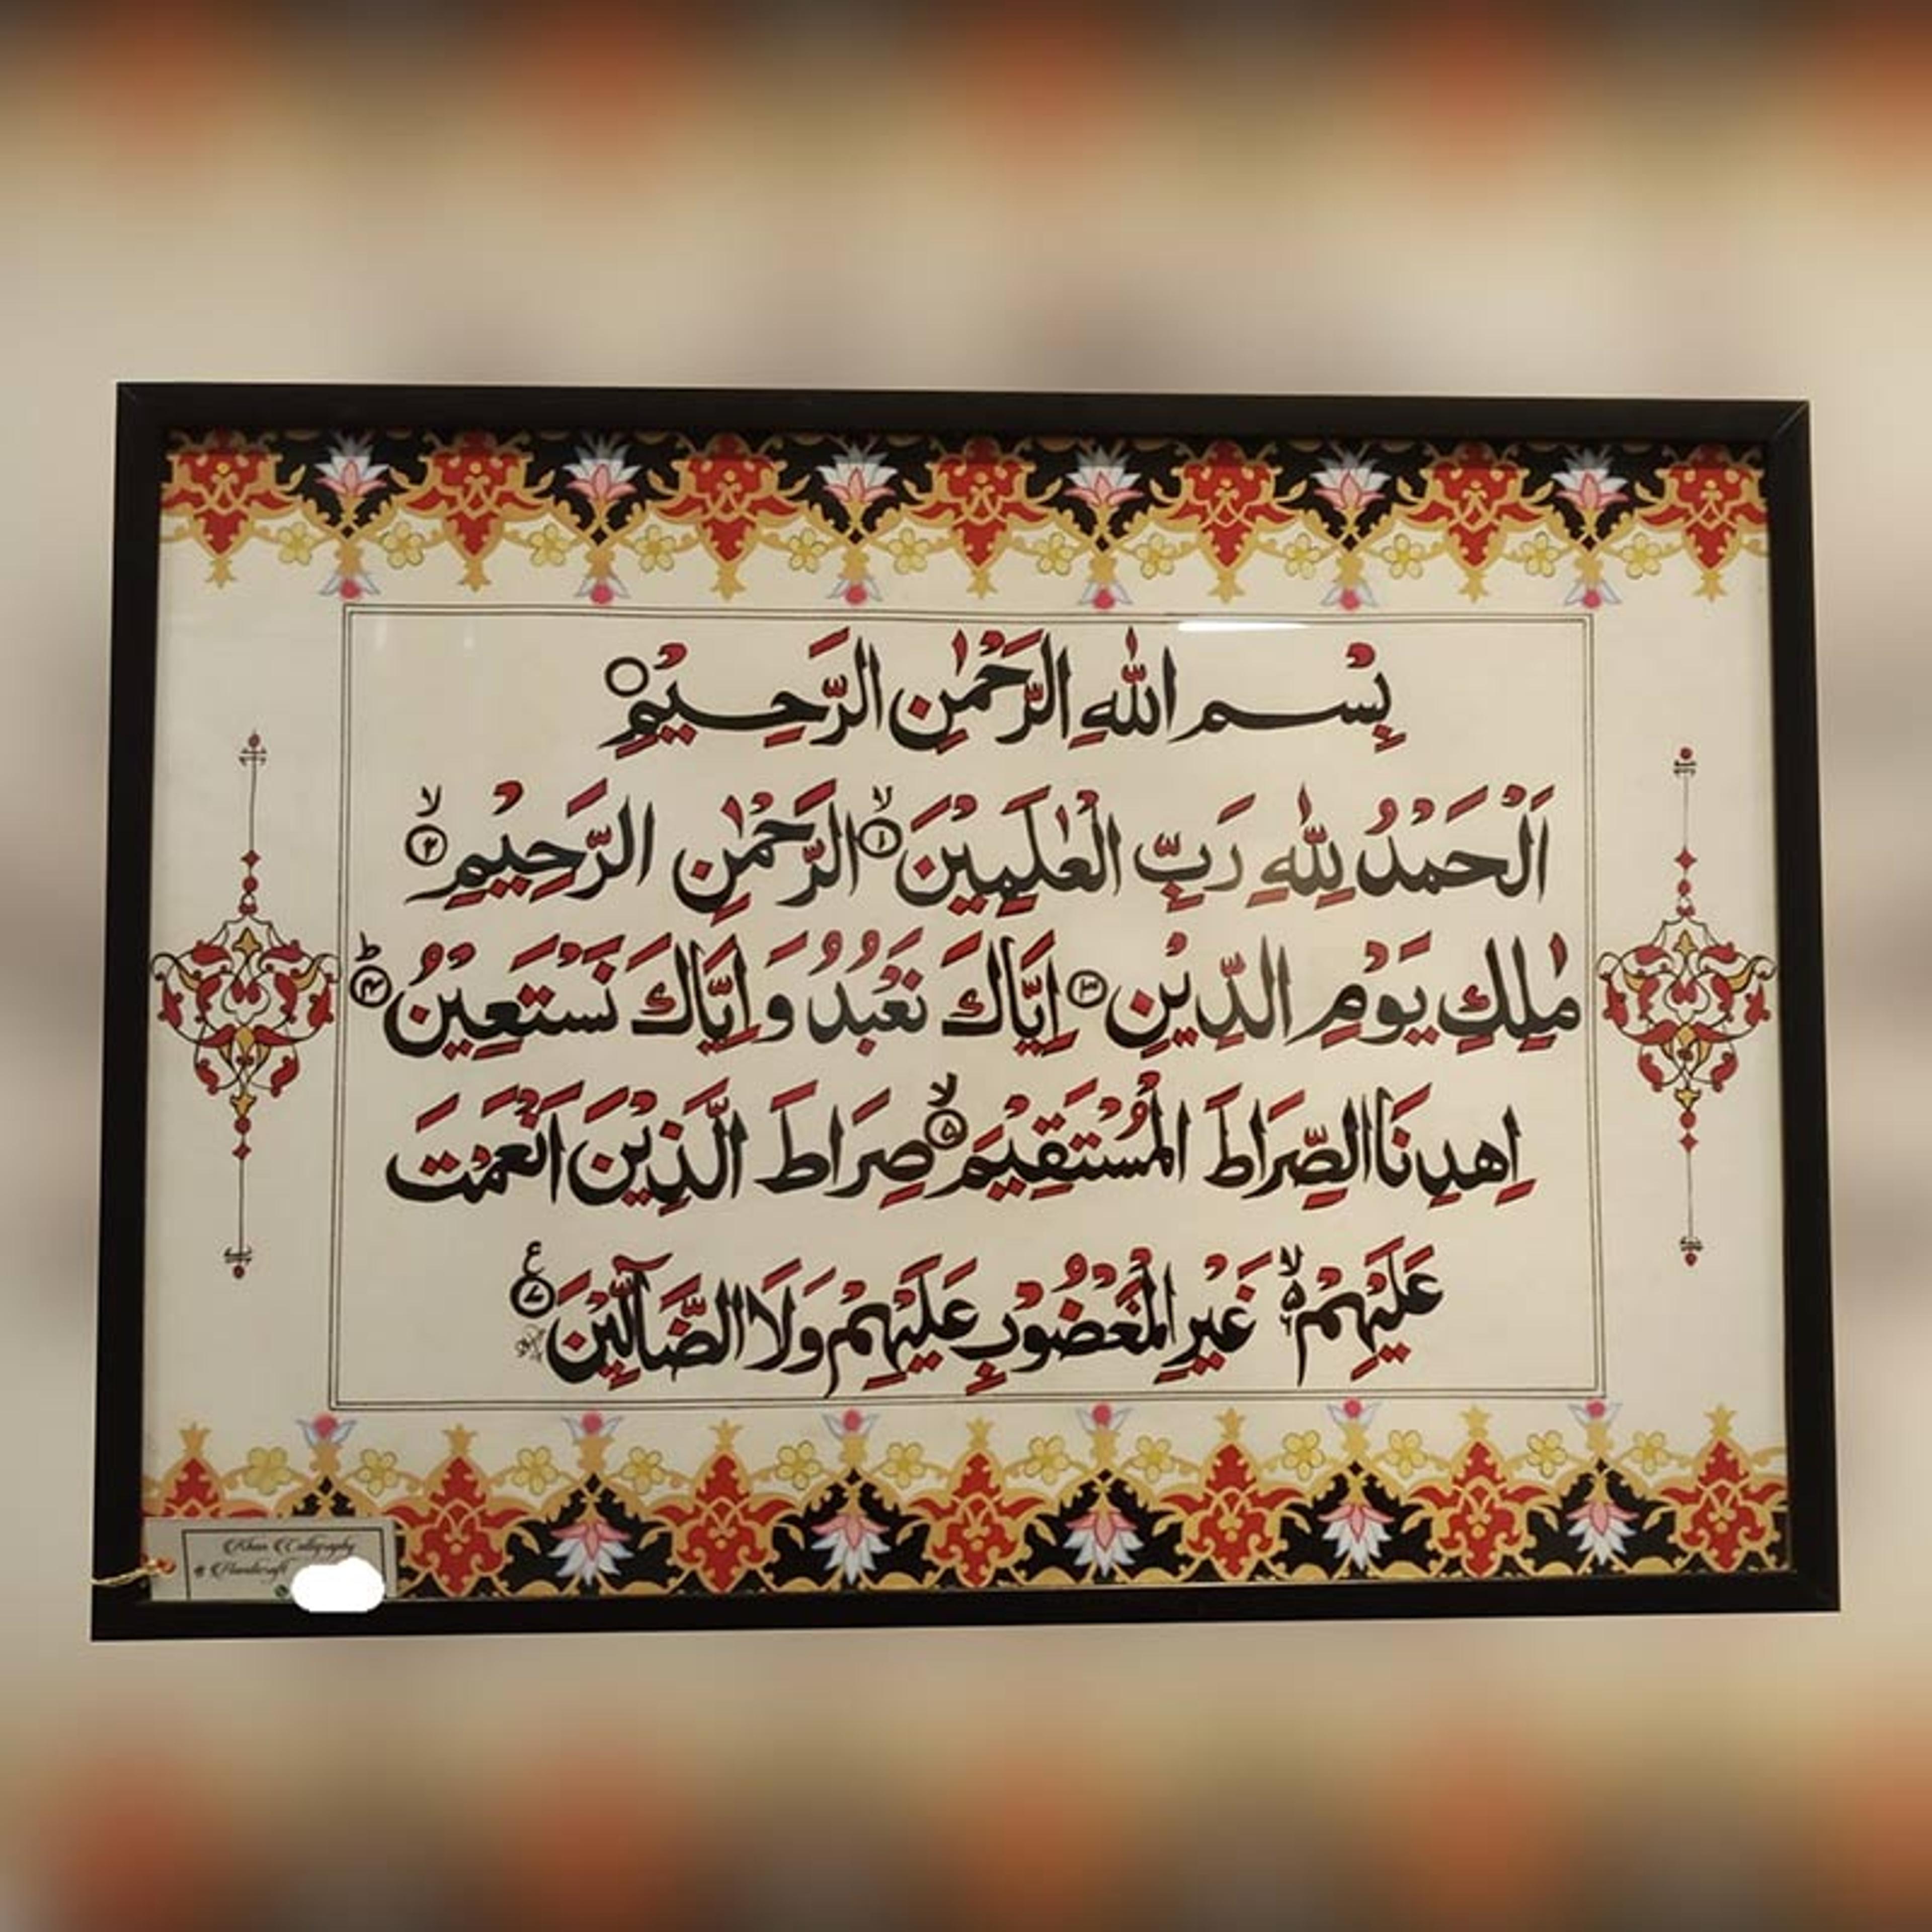 بِسْمِ اللّٰهِ الرَّحْمٰنِ الرَّحِيْمِ ○
اَلْحَمْدُ لِلّٰهِ رَبِّ الْعٰلَمِيْنَ ۙ﴿۱﴾ الرَّحْمٰنِ الرَّحِيْمِ ۙ﴿۲﴾
مٰلِكِ يَوْمِ الدِّيْنِ ﴿۳﴾ اِيَّاكَ نَعْبُدُ وَ اِيَّاكَ نَسْتَعِيْنُ ؕ﴿۴﴾
اِهْدِنَا الصِّرَاطَ الْمُسْتَقِيْمَ ۙ﴿۵﴾ صِرَاطَ الَّذِيْنَ اَنْعَمْتَ
عَلَيْهِمْ ۙ۬۶ غَيْرِ الْمَغْضُوْبِ عَلَيْهِمْ وَلَا الضَّآلِّيْنَ ﴿۷﴾ ع
Khan Calligraphy
& Handicraft